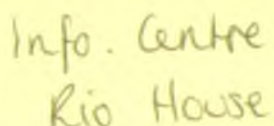 Info. Centre
Rio House